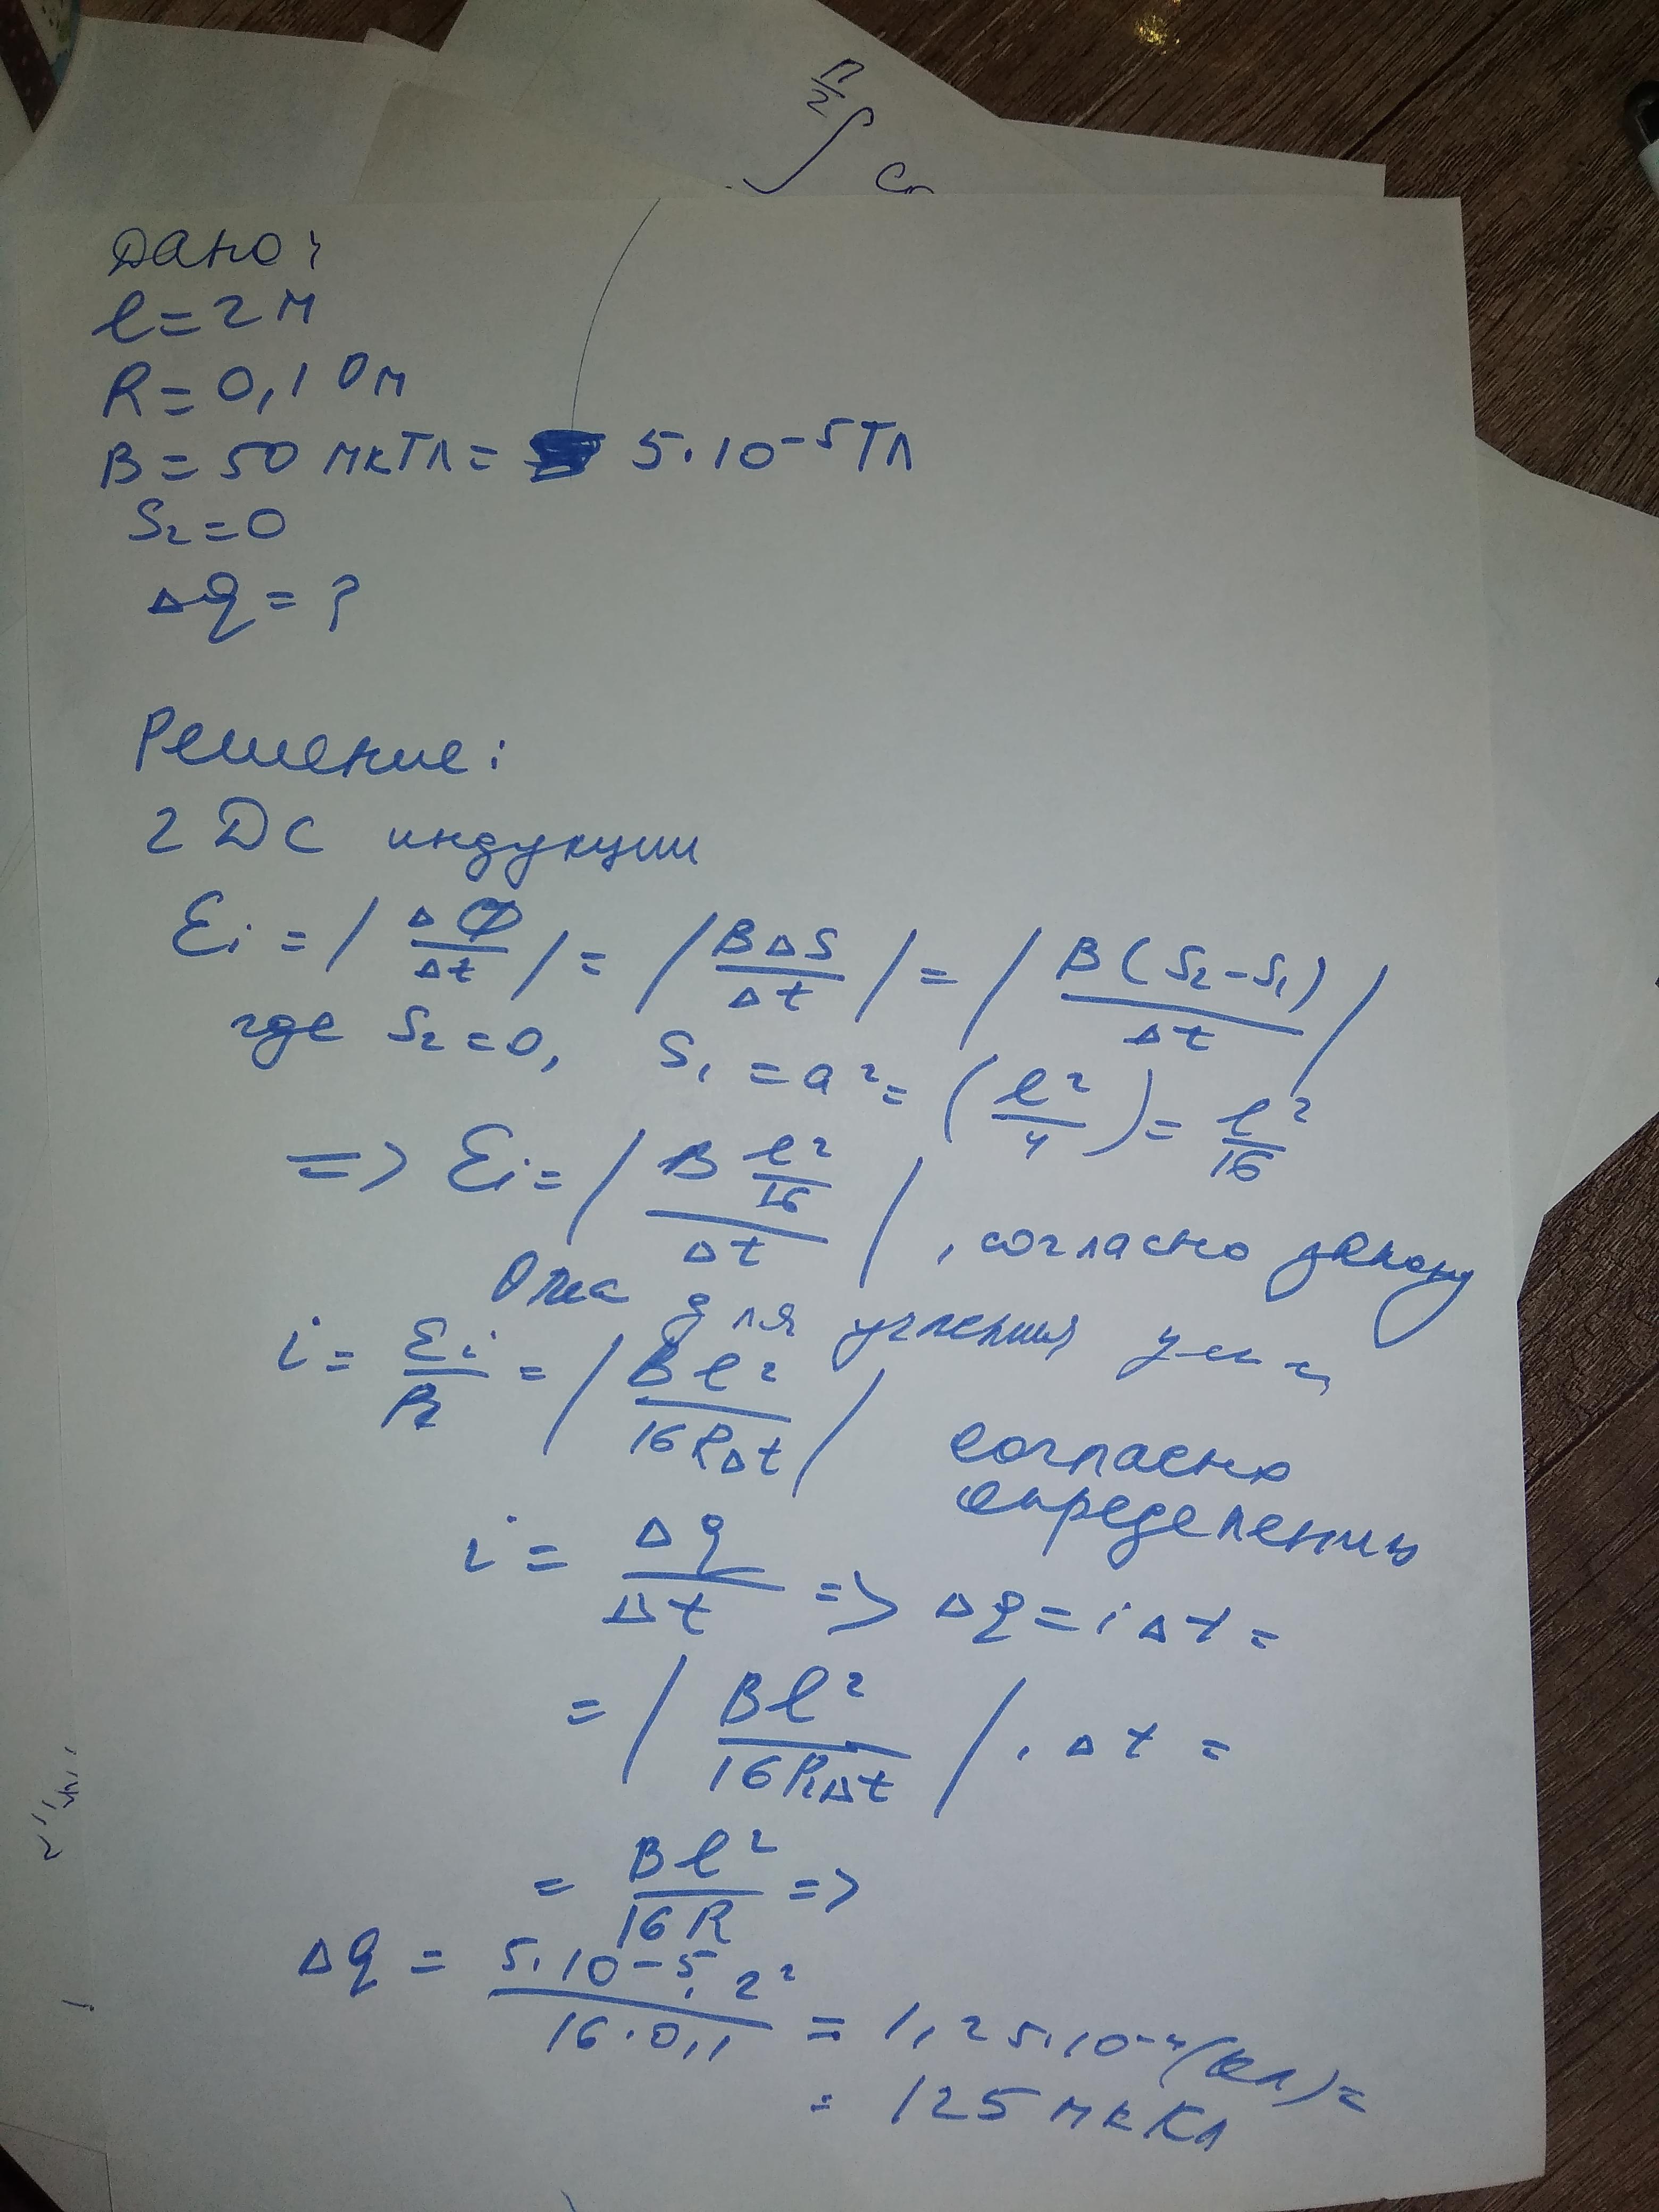 π/2
∫ Co
Дано:
l = 2 м
R = 0,1 Ом
B = 50 мкТл = 5·10⁻⁵ Тл
S₂ = 0
Δq = ?
Решение:
ЭДС индукции
Ɛi = |ΔФ/Δt| = |BΔS/Δt| = |B(S₂-S₁)/Δt|
где S₂ = 0, S₁ = a² = (l²/4) = l²/16
=> Ɛi = |B l²/16 / Δt|, согласно закону
Ома для участка цепи
i = Ɛi/R = |Bl²/16RΔt| согласно
определению
i = Δq/Δt => Δq = iΔt =
= |Bl²/16RΔt| · Δt =
= Bl²/16R =>
Δq = 5·10⁻⁵·2²/16·0,1 = 1,25·10⁻⁴ (Кл) =
= 125 мкКл